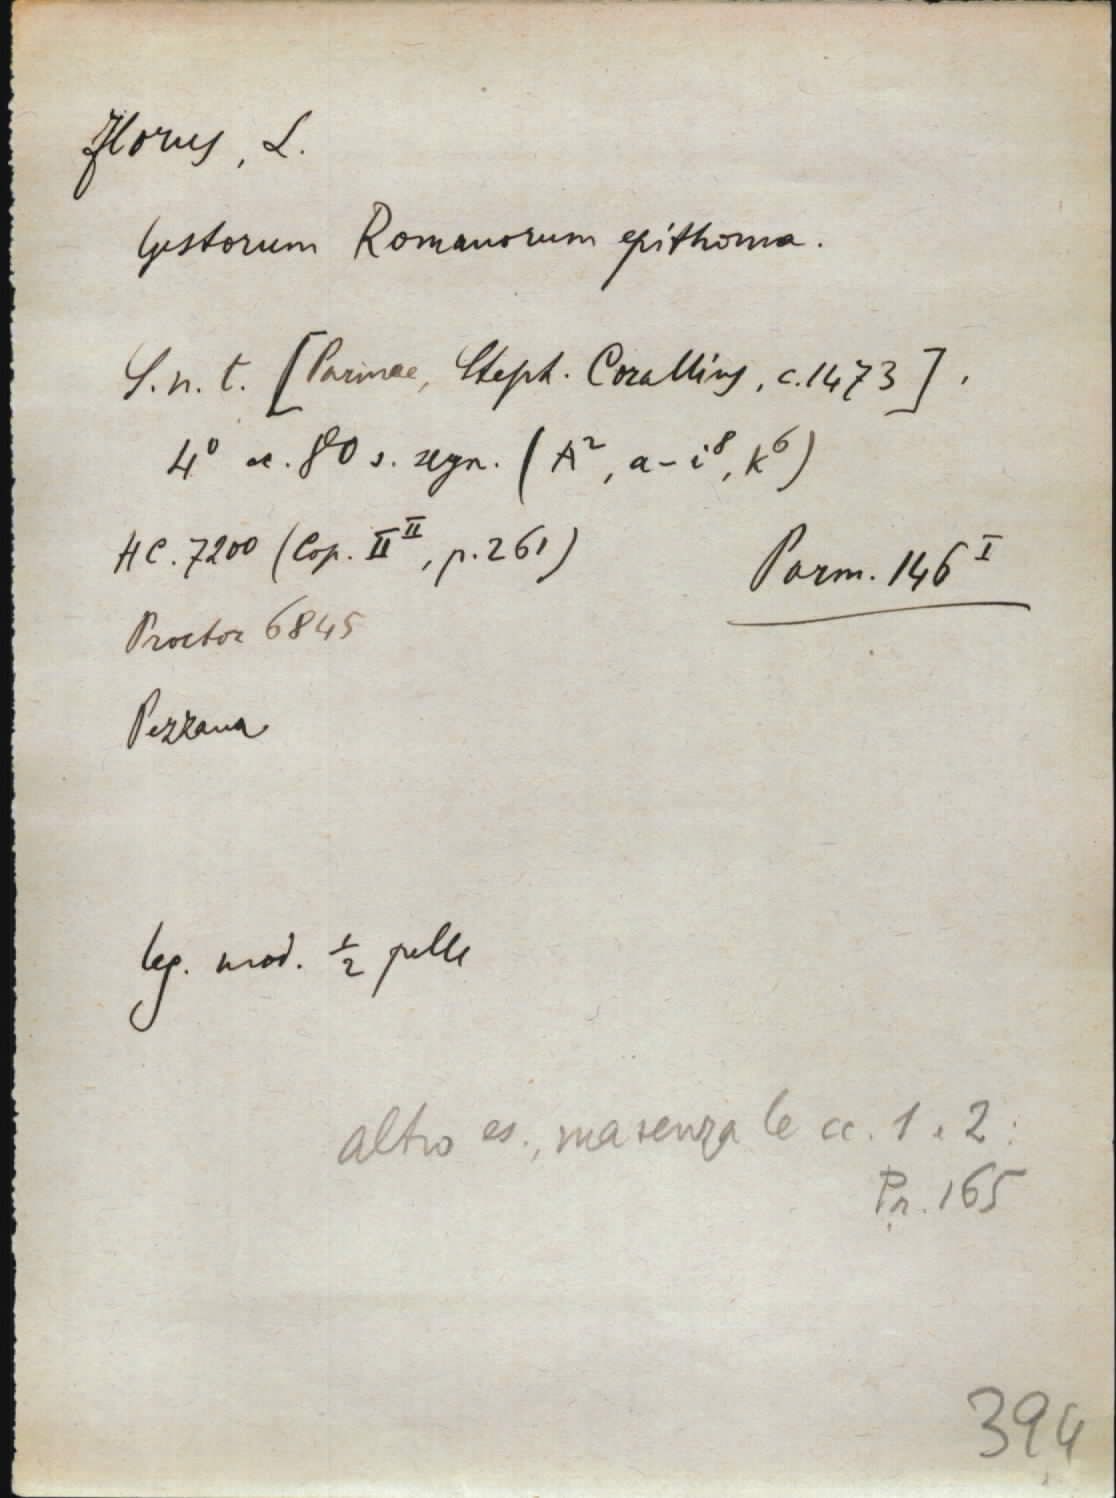 Florus, L.
Gestorum Romanorum epithoma.
S.n.t. [Parmae, Steph. Corallius, c.1473].
4° cc. 80 s. segn. (A², a-i⁸, k⁶)
HC. 7200 (Cop. II^II, p.261)
Parm. 146^I
Proctor 6845
Pezzana
leg. mod. ½ pelle
altro es., ma senza le cc. 1 e 2:
Pr. 165
394